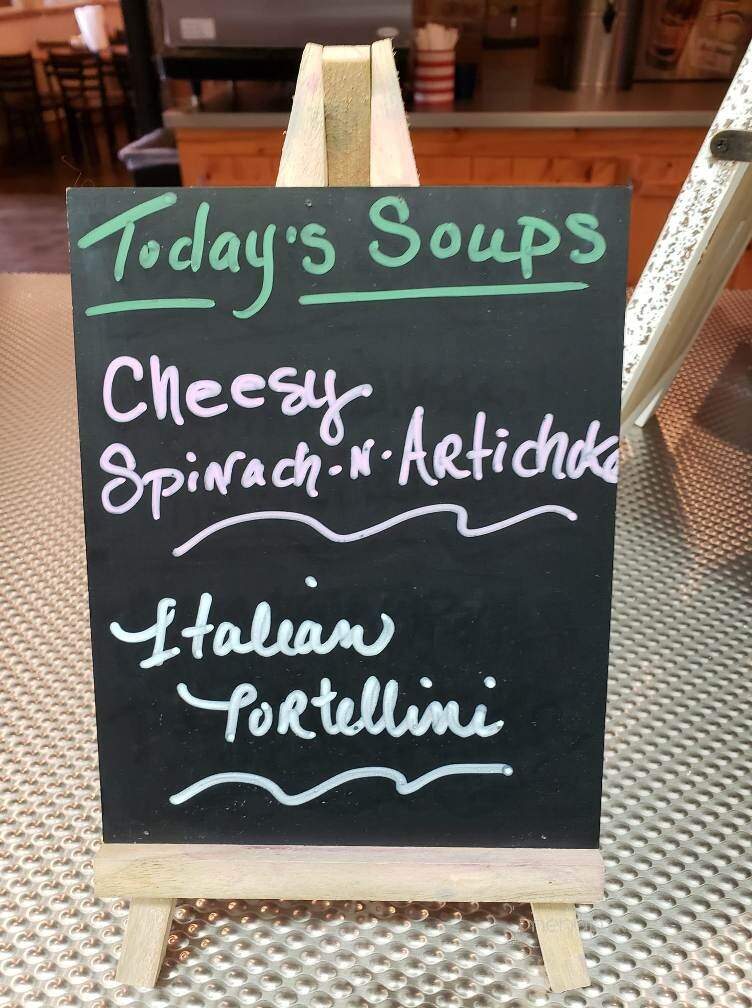 Today's Soups
Cheesy
Spinach-N-Artichoke
Italian
Tortellini